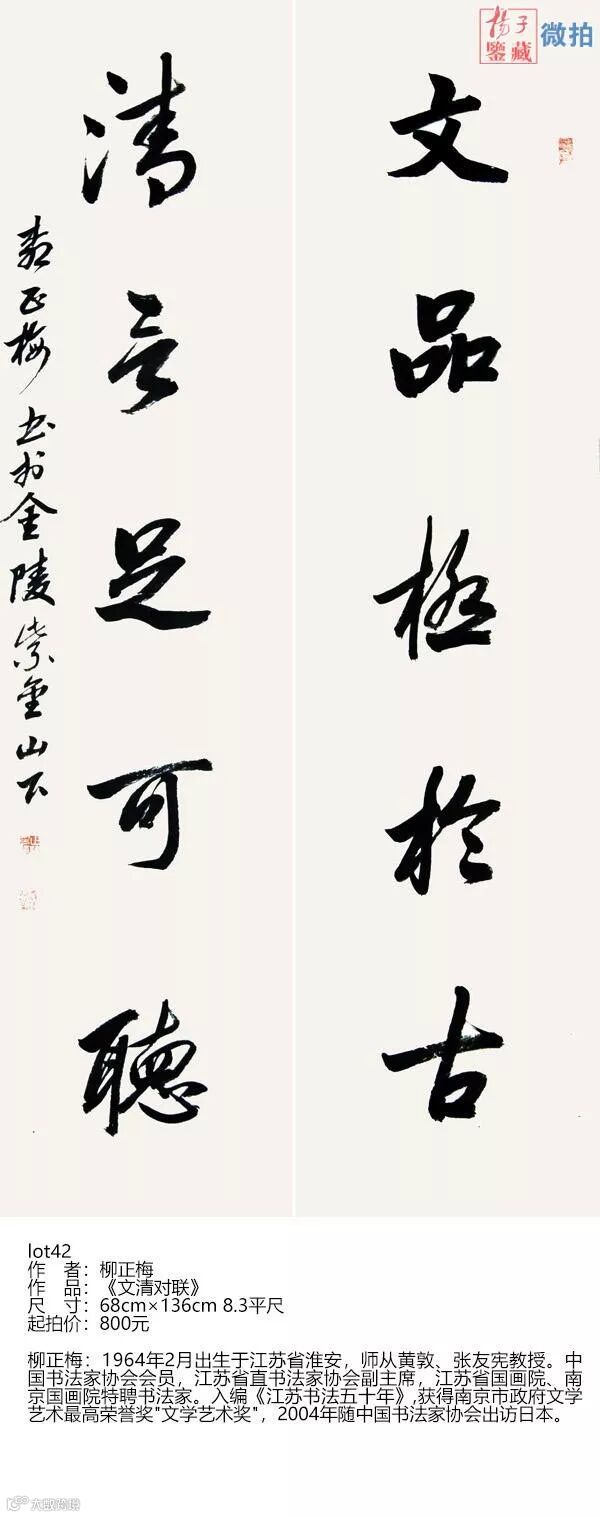 楊子
鑒藏
微拍
文品極於古
清言足可聽
柳正梅书於金陵紫金山下
lot42
作 者：柳正梅
作 品：《文清对联》
尺 寸：68cm×136cm 8.3平尺
起拍价：800元
柳正梅：1964年2月出生于江苏省淮安，师从黄敦、张友宪教授。中
国书法家协会会员，江苏省直书法家协会副主席，江苏省国画院、南
京国画院特聘书法家。入编《江苏书法五十年》,获得南京市政府文学
艺术最高荣誉奖"文学艺术奖"，2004年随中国书法家协会出访日本。